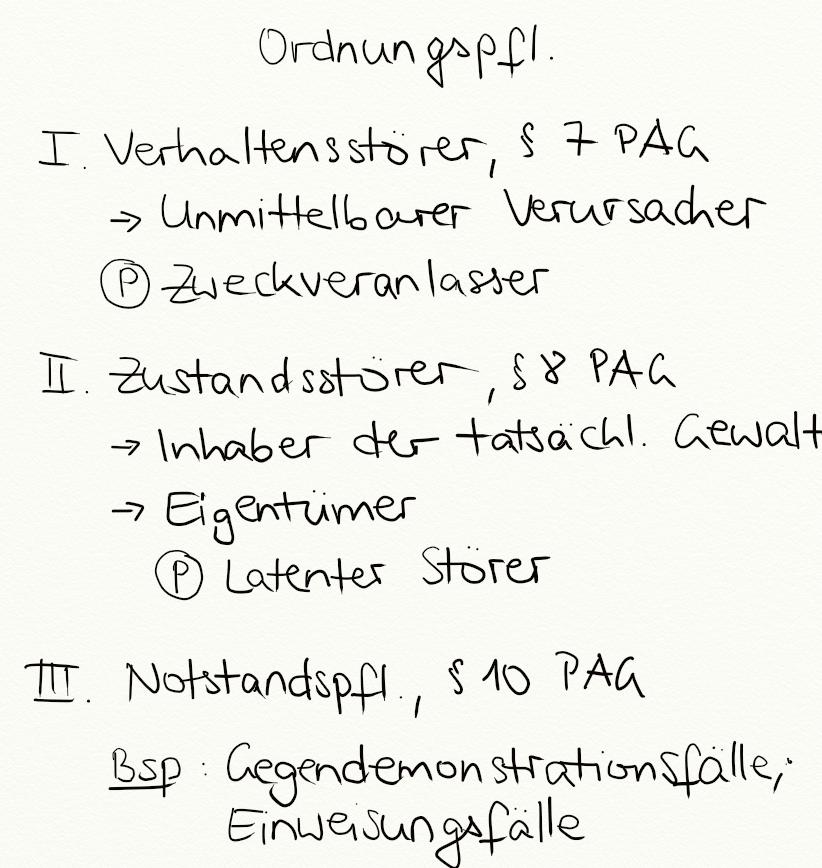 Ordnungspfl.
I. Verhaltensstörer, § 7 PAG
→ Unmittelbarer Verursacher
Ⓟ Zweckveranlasser
II. Zustandsstörer, § 8 PAG
→ Inhaber der tatsächl. Gewalt
→ Eigentümer
Ⓟ Latenter Störer
III. Notstandspfl., § 10 PAG
Bsp: Gegendemonstrationsfälle,
Einweisungsfälle